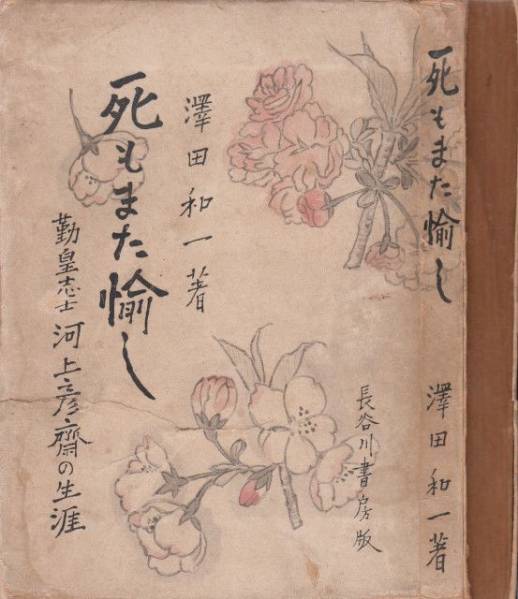 死もまた愉し
澤田和一著
死もまた愉し
勤皇志士河上彦齋の生涯
長谷川書房版
澤田和一著